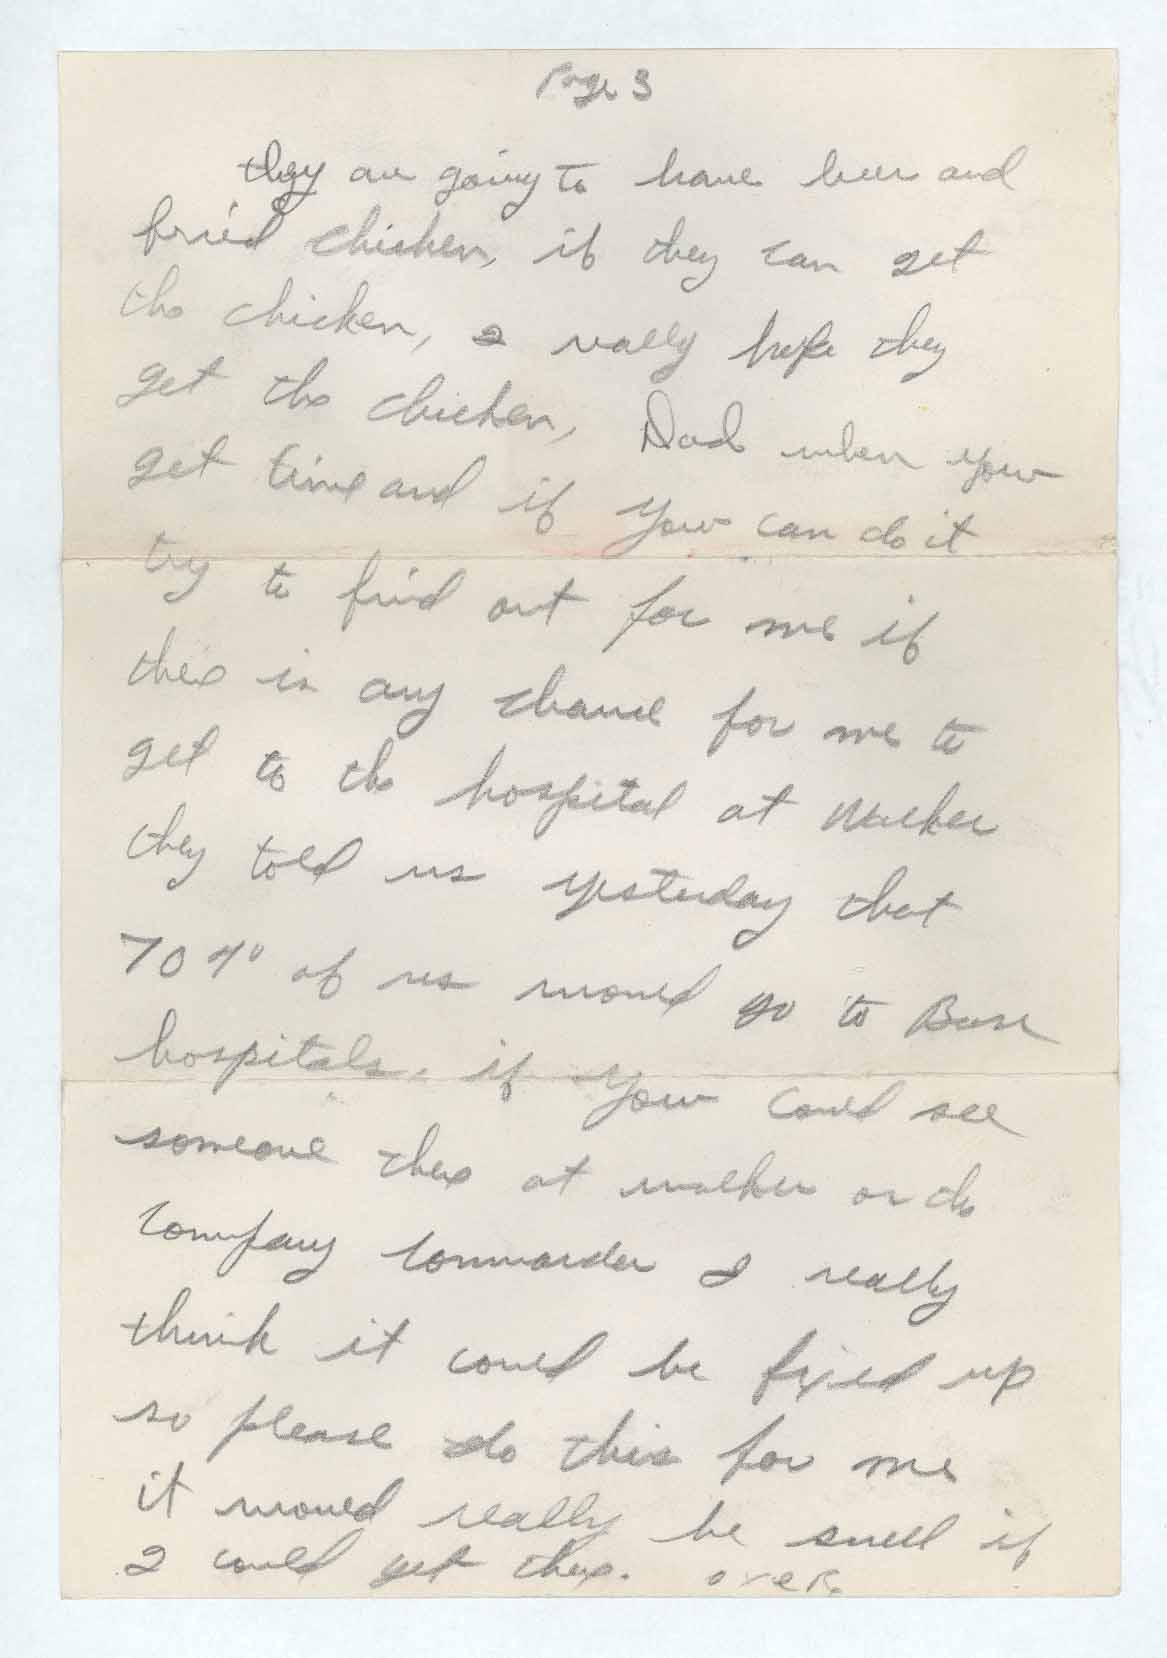 Page 3
they are going to have beer and
fried chicken, if they can get
the chicken, I really hope they
get the chicken, Dad when you
get time and if you can do it
try to find out for me if
there is any chance for me to
get to the hospital at Walker
they told us yesterday that
70 % of us would go to Base
hospitals. if you could see
someone there at walker or the
company commander I really
think it could be fixed up
so please do this for me
it would really be swell if
I could get there. over.